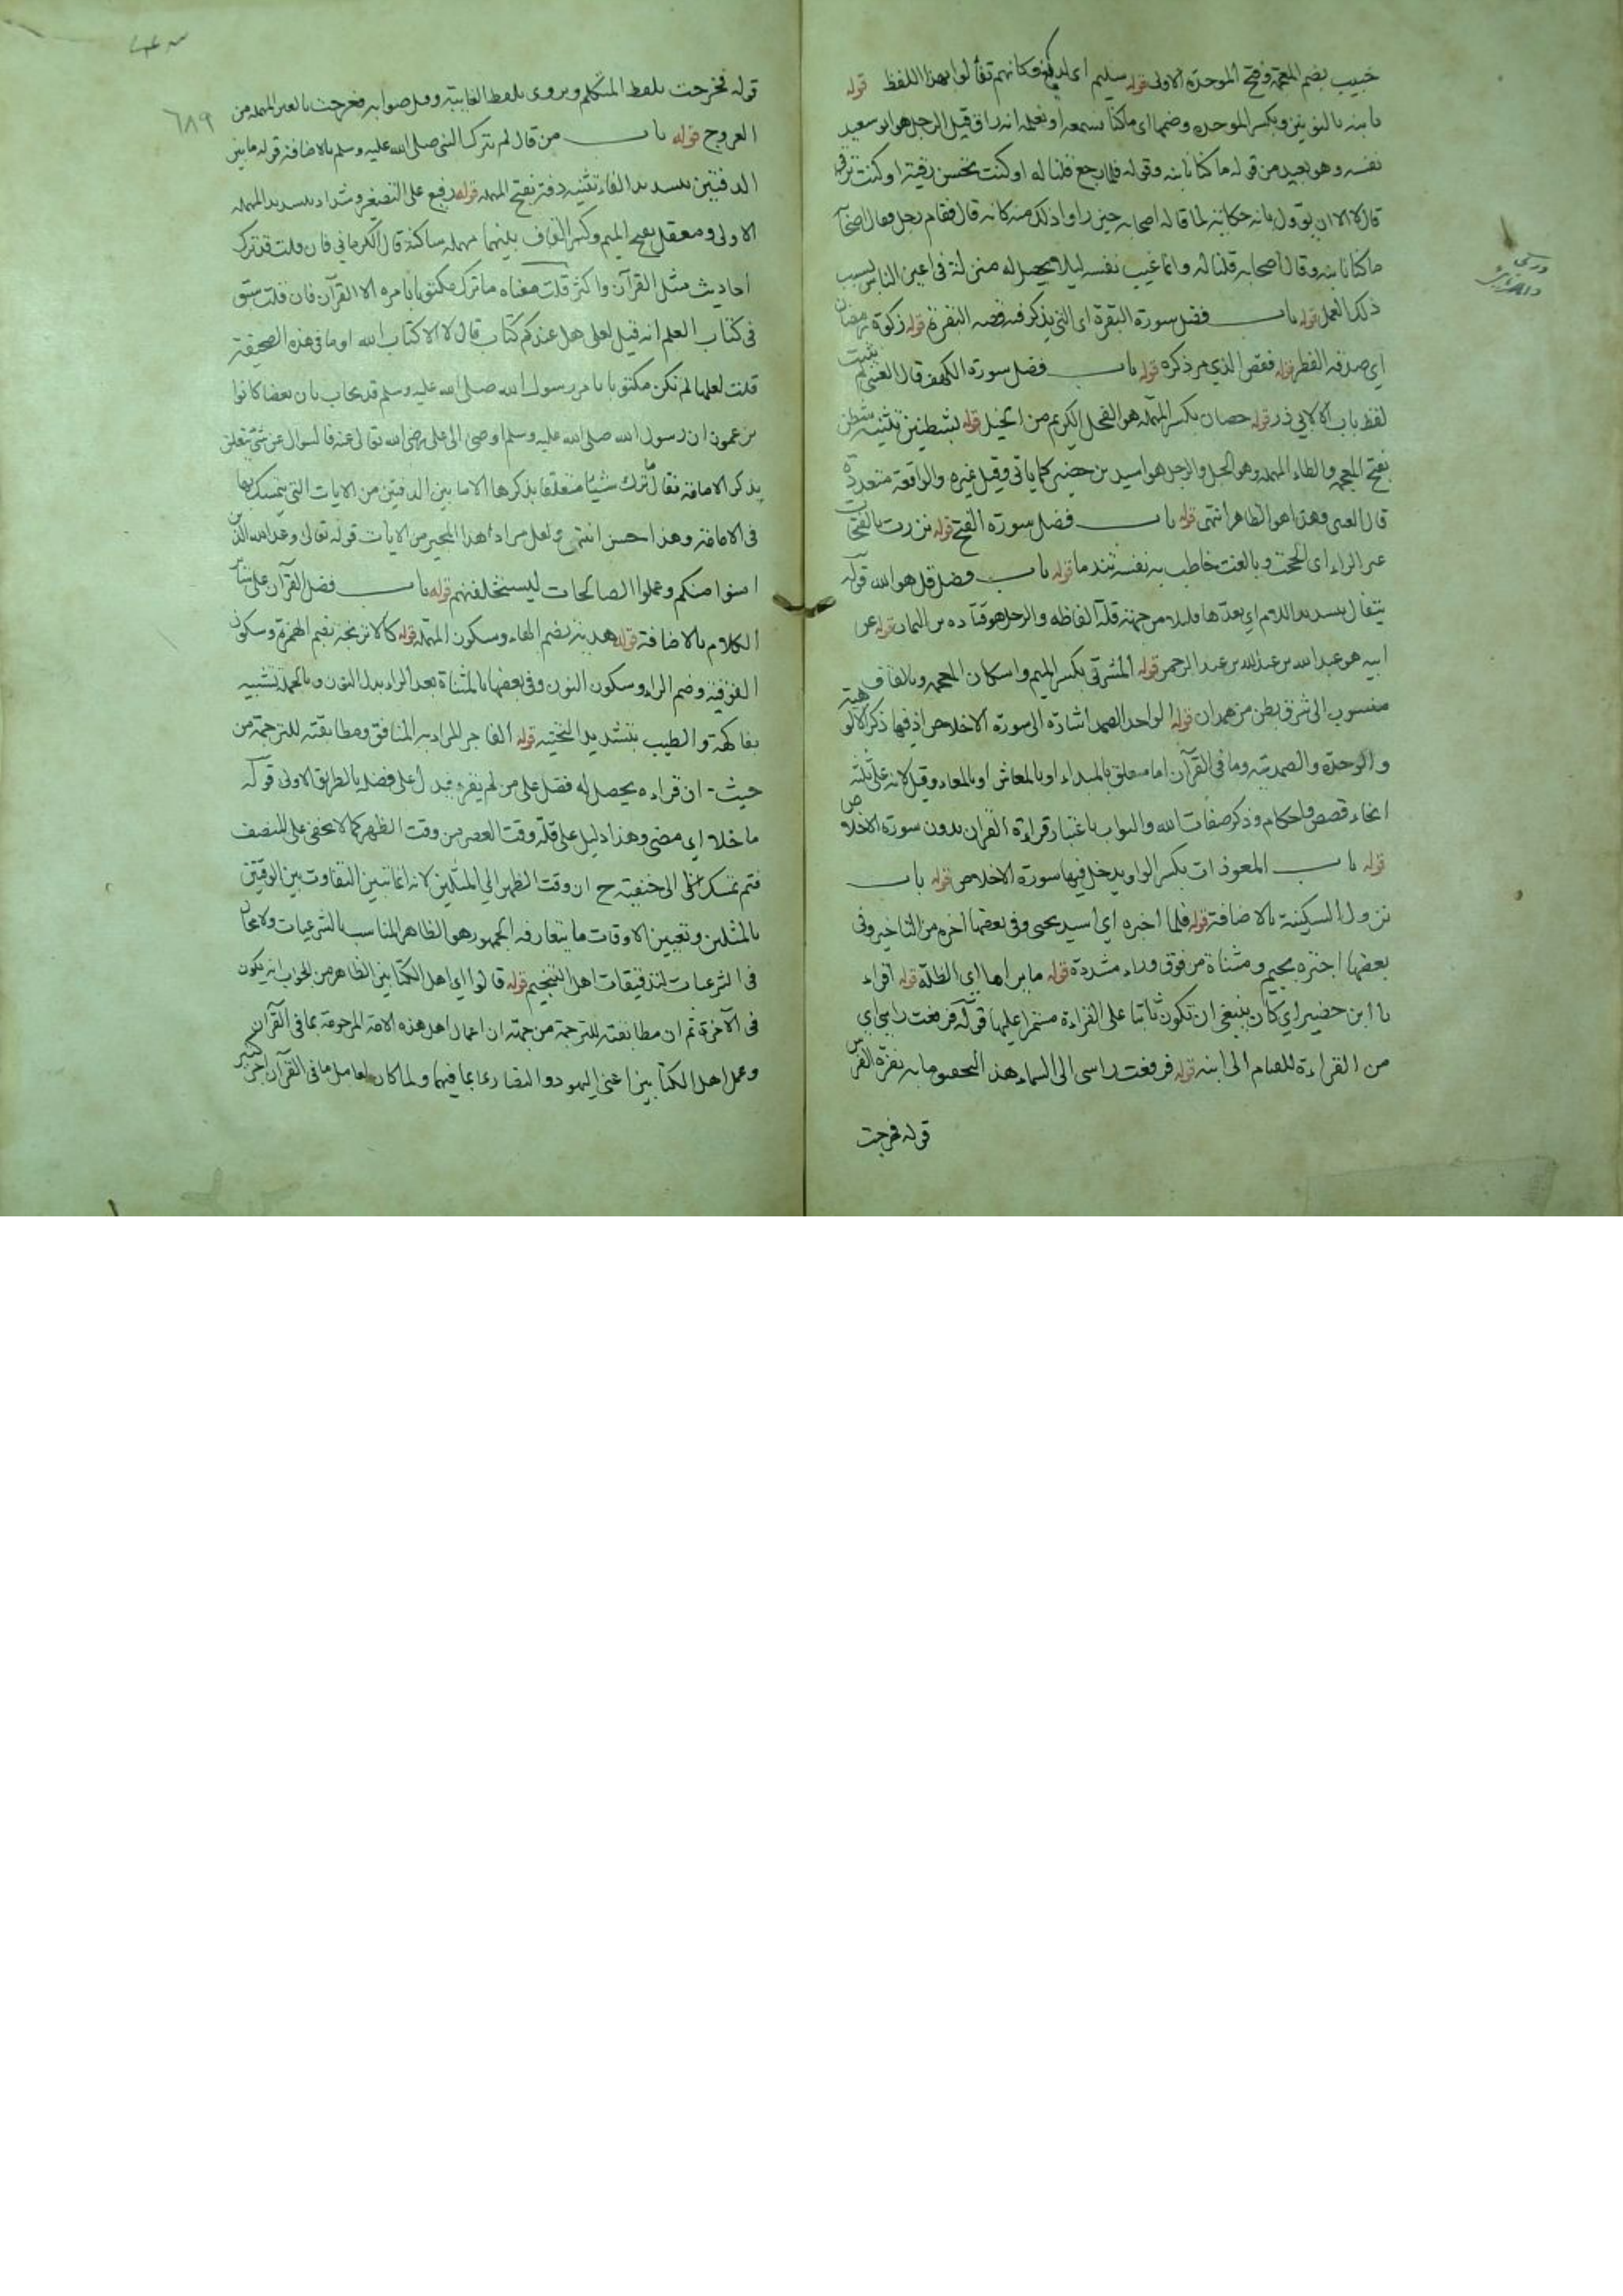 خبيب بضم المعجمة وفتح الموحدة الاولى قوله سليم اي لديغ وكانهم تفألوا بهذا اللفظ قوله
نابنه بالنونين وبكسر الموحدة وضمها اي ماكنا نسمعه او نعلمه انه راق وقيل الرجل هو ابو سعيد
نفسه وهو بعيد من قوله ما كنا نابنه وقوله فلما رجع قلنا له او كنت تحسن رقية او كنت ترقى
قال لا الا ان يؤول بانه حكاية لما قاله اصحابه حين راوا ذلك منه كانه قال فقام رجل فقال اصحابه
ما كنا نابنه وقال اصحابه قلنا له وانما غيب نفسه ليلا يحصل له منزلة في اعين الناس بسبب
ذلك العمل قوله باب فضل سورة البقرة اي التي يذكر فيه قصة البقرة قوله زكوة رمضان
اي صدقة الفطر قوله فقص الذي مر ذكره قوله باب فضل سورة الكهف قال العيني لم يثبت
لفظ باب الا لابي ذر قوله حصان بكسر المهملة هو الفحل الكريم من الخيل قوله بشطنين تثنية شطن
بفتح المعجمة والطاء المهملة وهو الحبل والرجل هو اسيد بن حضير كما ياتي وقيل غيره والواقعة متعددة
قال العيني وهذا هو الظاهر انتهى قوله باب فضل سورة الفتح قوله نزرت بالفتحات
عمر الزاء اي الححت وبالغت خاطب به نفسه تندما قوله باب فضل قل هو الله قوله
يتقال بتشديد اللام اي يعدها قليلا من جهة قلة الفاظه والرجل هو قتادة بن النعمان قوله عن
ابيه هو عبد الله بن عبد الله بن عبد الرحمن قوله المشرقي بكسر الميم واسكان المعجمة وبالقاف
منسوب الى شرق بطن من همدان قوله الواحد الصمد اشارة الى سورة الاخلاص اذ فيها ذكر الالوهية
والوحدة والصمدية وما في القرآن اما متعلق بالمبداء او بالمعاش او بالمعاد وقيل لانه على ثلثة
انحاء قصص واحكام وذكر صفات الله والثواب باعتبار قراءة القران بدون سورة الاخلاص
قوله باب المعوذات بكسر الواو ويدخل فيها سورة الاخلاص قوله باب
نزول السكينة بالاضافة قوله فلما اخبره اي اسيد يحيى وفي بعضها اخره من التاخير وفي
بعضها اجتره بجيم ومثناة من فوق وراء مشددة قوله ما يراها اي الظلة قوله اقراء
يا ابن حضير اي كان ينبغي ان تكون ثابتا على القراءة مستمرا عليها قوله فرفعت راسي اي
من القراءة للقيام الى ابنه قوله فرفعت راسي الى السماء هذ لتحقيق ما به نفرة الفرس
قوله فخرجت
قوله فخرجت بلفظ المتكلم ويروى بلفظ الغايبة وقيل صوابه فعرجت بالعين المهملة من
العروج قوله باب من قال لم يترك النبي صلى الله عليه وسلم بالاضافة قوله ما بين
الدفتين بتشديد الفاء تثنية دفة بفتح المهملة قوله رفيع على التصغير وشداد بتشديد المهملة
الاولى ومعقل بفتح الميم وكسر القاف بينهما مهملة ساكنة قال الكرماني فان قلت قد ترك
احاديث مثل القرآن واكثر قلت معناه ما ترك مكتوبا بامره الا القرآن فان قلت سبق
في كتاب العلم انه قيل لعلي هل عندكم كتاب قال لا الا كتاب الله او ما في هذه الصحيفة
قلت لعلها لم تكن مكتوبا بامر رسول الله صلى الله عليه وسلم قد يجاب بان بعضا كانوا
يزعمون ان رسول الله صلى الله عليه وسلم اوصى الى علي رضي الله تعالى عنه فالسوال عن شئ يتعلق
بذكر الامامة فقال ما ترك شيئا متعلقا بذكرها الا ما بين الدفتين من الايات التي يتمسك بها
في الامامة وهذا حسن انتهى ولعل مراد هذا المجيب من الايات قوله تعالى وعد الله الذين
امنوا منكم وعملوا الصالحات ليستخلفنهم قوله باب فضل القرآن على ساير
الكلام بالاضافة قوله هدبة بضم الهاء وسكون المهملة قوله كالاترنجة بضم الهمزة وسكون
الفوقية وضم الراء وسكون النون وفي بعضها بالمثناة بعد الراء بدل النون وبالحمد تشبيه
بفاكهة والطيب بتشديد التحتية قوله الفاجر المراد به المنافق ومطابقته للترجمة من
حيث ان قراءه يحصل له فضل على من لم يقره فيدل على فضله بالطريق الاولى قوله
ما خلا اي مضى وهذا دليل على قلة وقت العصر من وقت الظهر كما لا يخفى على المنصف
فتم تمسك ابي حنيفة ح ان وقت الظهر الي المثلين لانه انما تبين التفاوت بين الوقتين
بالمثلين وتعيين الاوقات ما يتعارفه الجمهور هو الظاهر المناسب بالشرعيات ولا مجال
في الشرعيات لتدقيقات اهل التنجيم قوله قالوا اي اهل الكتابين الظاهر من الجواب انه يكون
في الآخرة ثم ان مطابقته للترجمة من جهة ان اعمال اهل هذه الامة المرحومة بما في القرآن
وعمل اهل الكتابين اعني اليهود والنصارى بما فيهما ولما كان لعامل ما في القرآن اجر كثير
٦٨٩